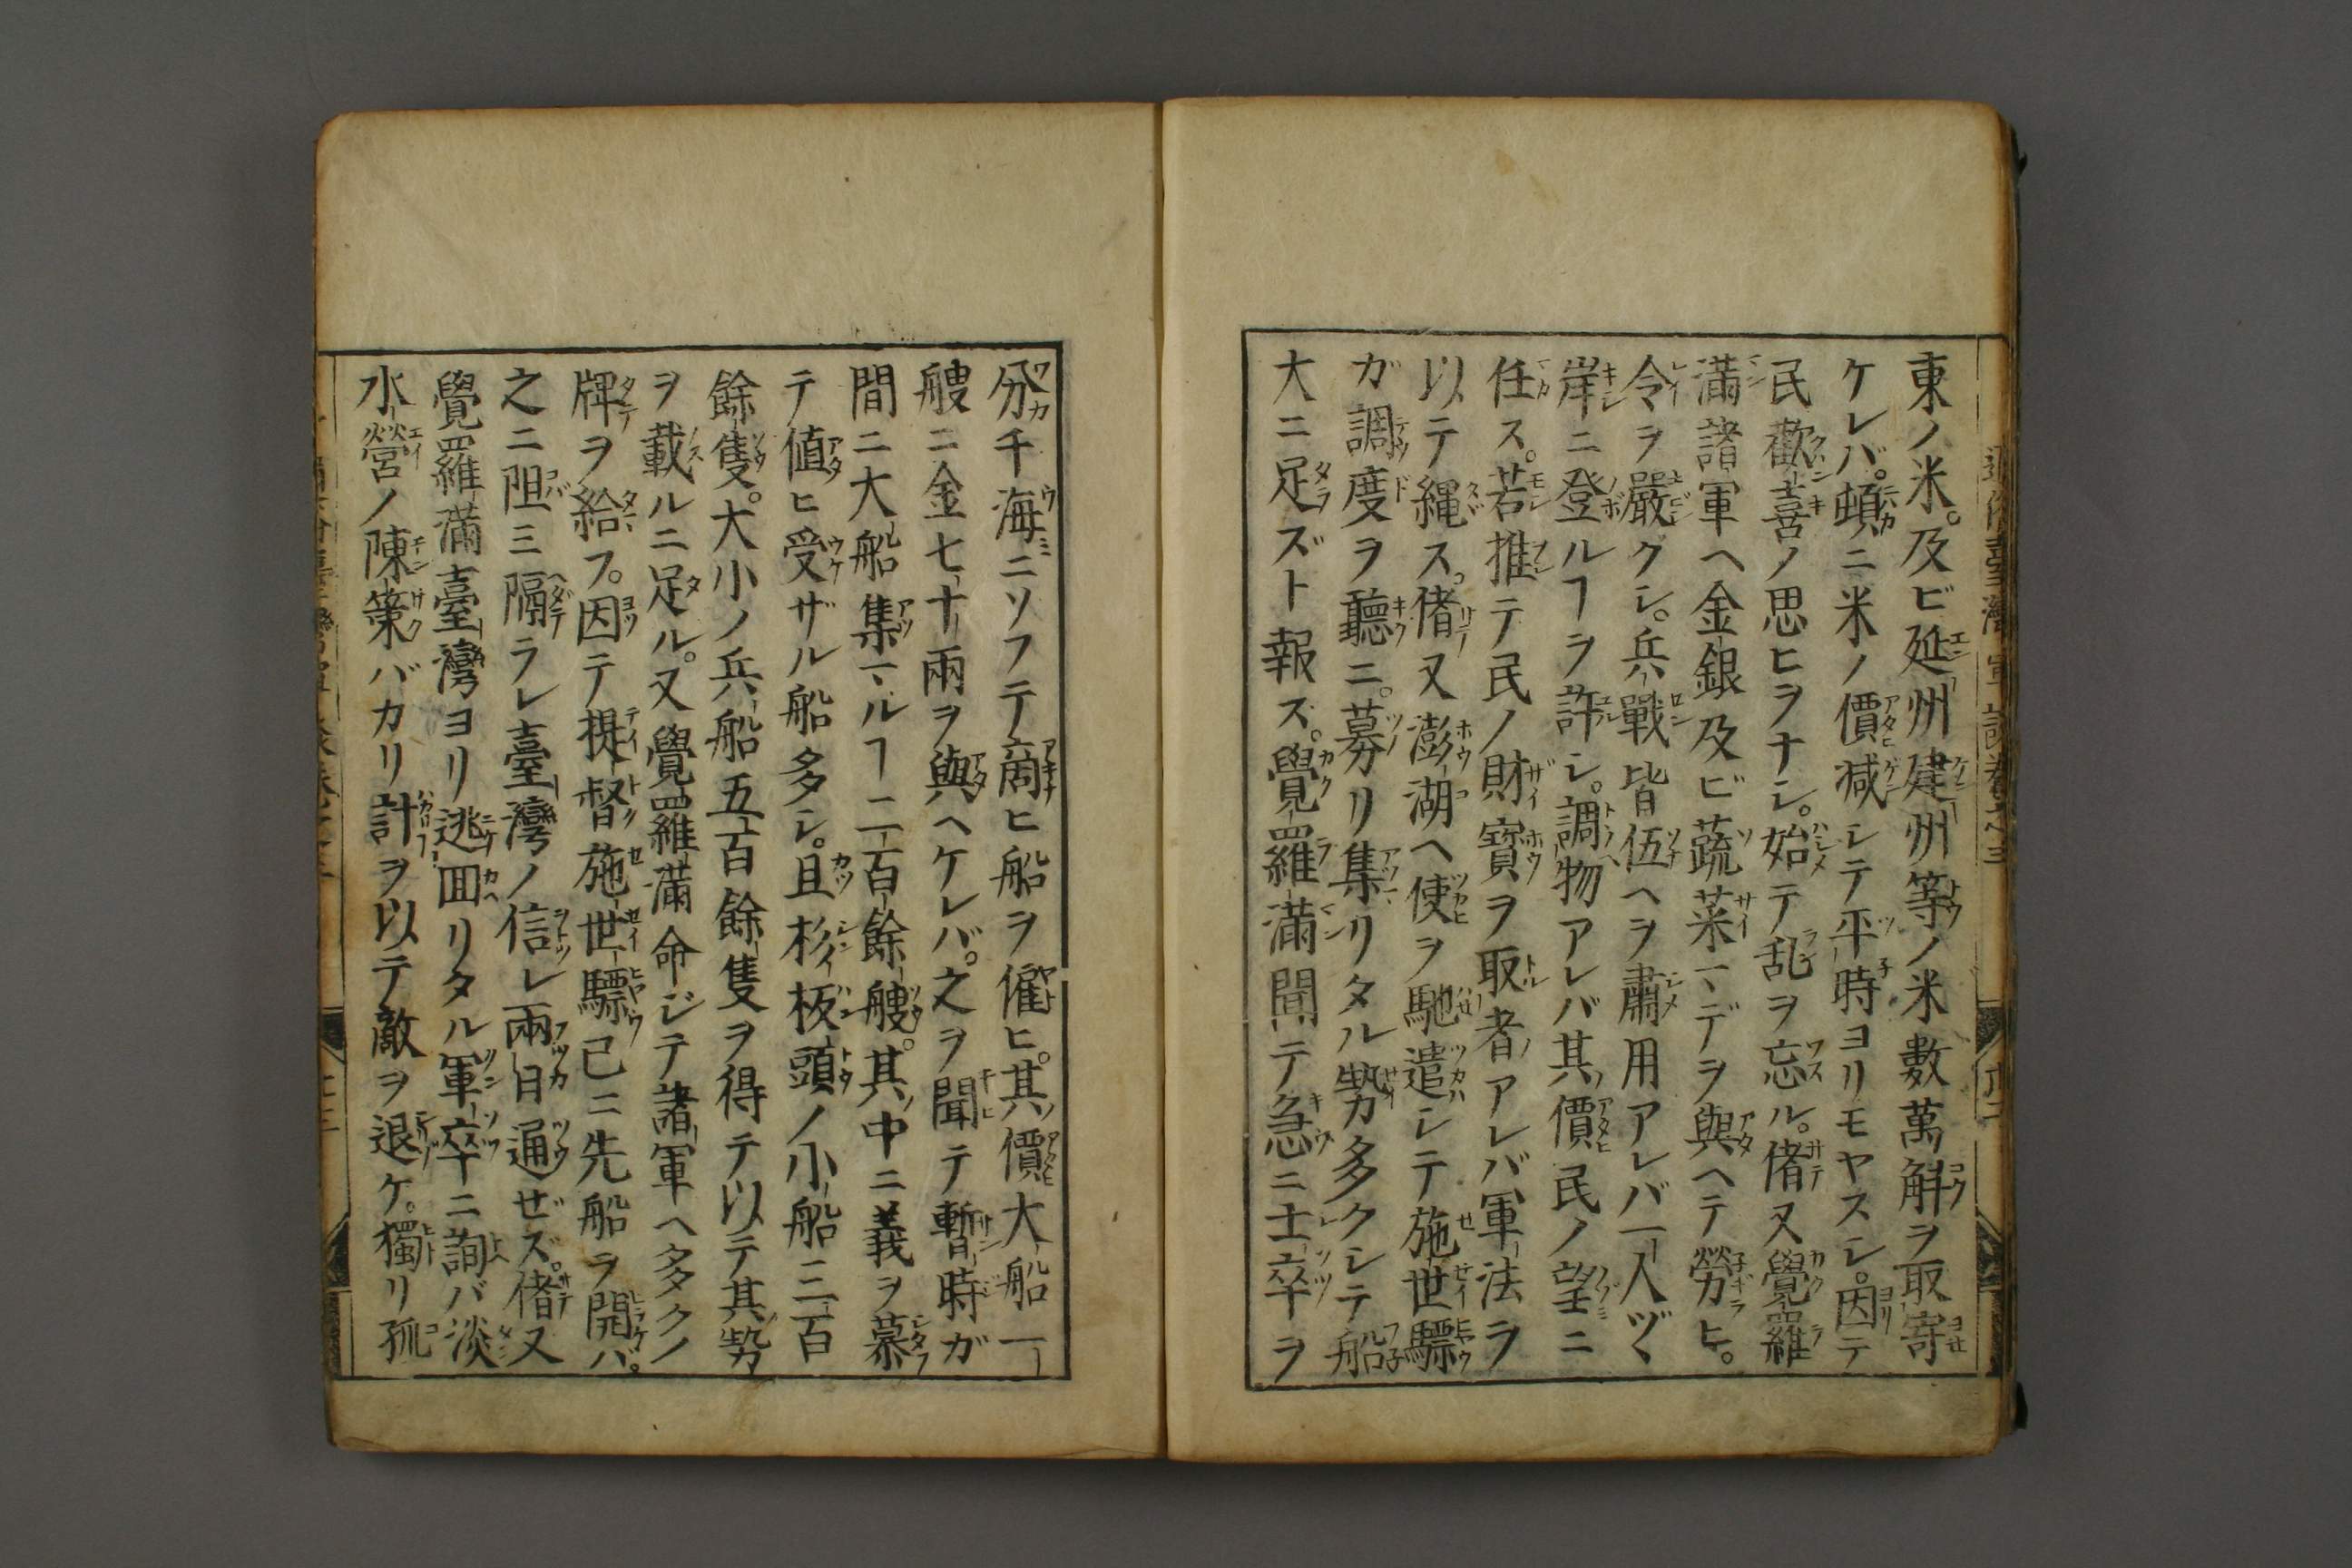 東ノ米。及ビ延州建州等ノ米數萬斛ヲ取寄
ケレバ。頓ニ米ノ價減シテ平時ヨリモヤスシ。因テ
民歡喜ノ思ヒヲナシ。始テ乱ヲ忘ル。偖又覺羅
滿諸軍ヘ金銀及ビ蔬菜マデヲ與ヘテ勞ヒ。
令ヲ嚴クシ。兵戰皆伍ヘヲ肅用アレバ一人ヅヽ
岸ニ登ルヿヲ許シ。調物アレバ其價民ノ望ニ
任ス。若推テ民ノ財寳ヲ取者アレバ軍法ヲ
以テ縄ス。偖又澎湖ヘ使ヲ馳遣シテ施世驃
ガ調度ヲ聽ニ。募リ集リタル勢多クシテ船
大ニ足ズト報ス。覺羅滿聞テ急ニ士卒ヲ
分チ海ニソフテ商ヒ船ヲ僱ヒ。其價大船一
艘ニ金七十兩ヲ與ヘケレバ。之ヲ聞テ暫時ガ
間ニ大船集マルヿ二百餘艘。其中ニ義ヲ慕
テ値ヒ受ザル船多シ。且杉板頭ノ小船三百
餘隻。大小ノ兵船五百餘隻ヲ得テ以テ其勢
ヲ載ルニ足ル。又覺羅滿命ジテ諸軍ヘ多クノ
牌ヲ給フ。因テ提督施世驃已ニ先船ヲ開バ。
之ニ阻ミ隔ラレ臺灣ノ信レ兩日通ぜズ。偖又
覺羅滿臺灣ヨリ逃囬リタル軍卒ニ詢バ淡
水營ノ陳策バカリ計ヲ以テ敵ヲ退ケ。獨リ孤